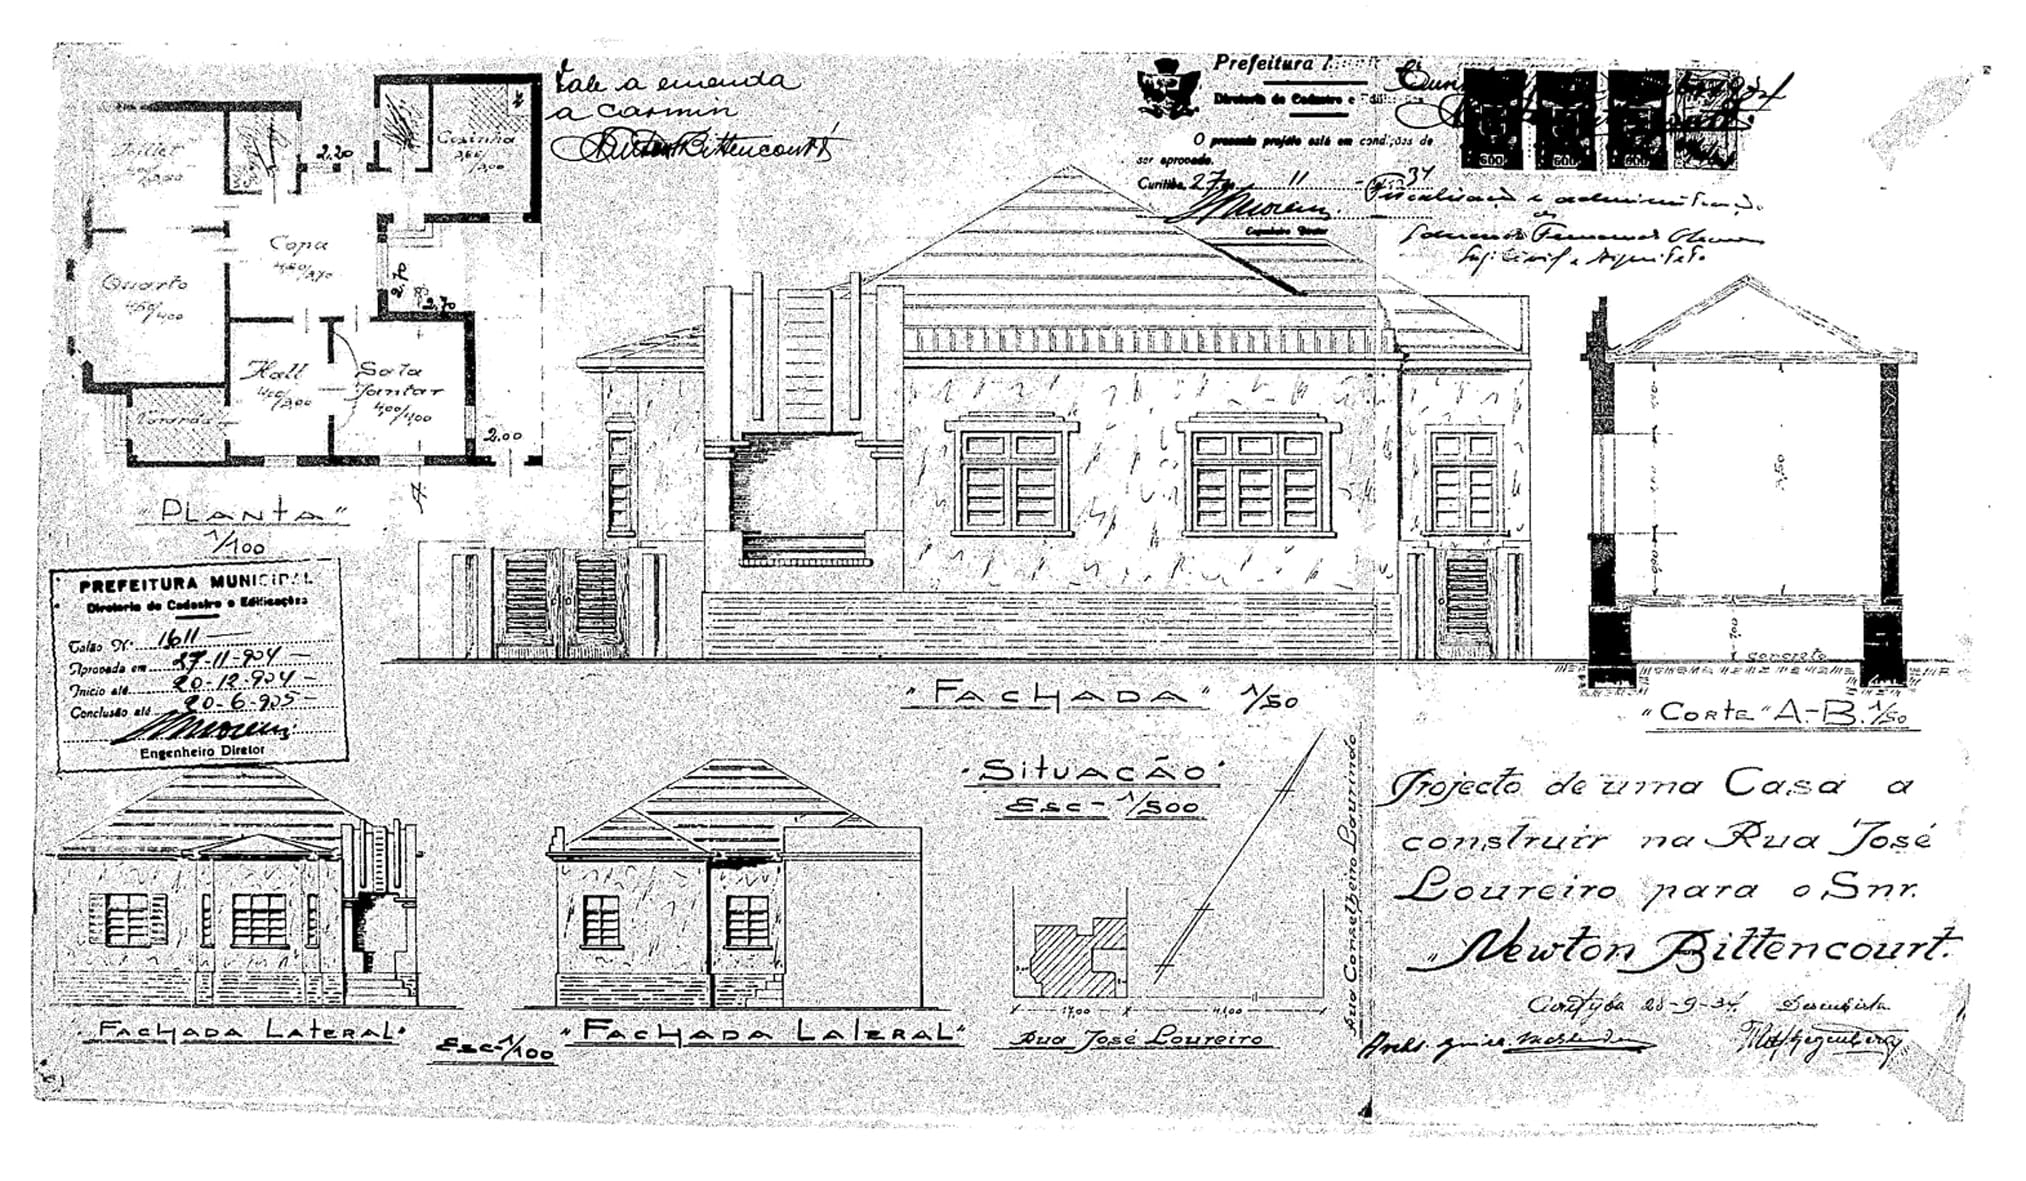 Vale a emenda
a carmin
Newton Bittencourt
Prefeitura
Diretoria de Cadastro e Edificações
O presente projéto está em condições de
ser aprovado.
Curitiba, 27 de 11 - de 1934
Engenheiro Diretor
600
600
600
Fiscalisação e administração
de
Eng. Civil e Arquiteto
Toillet
2.20
Cosinha
3,00
Copa
4,50/3,70
2.70
2.70
Quarto
4,50/4,00
Hall
4,00/3,00
Sala
Jantar
4,00/4,00
Varanda
2.00
A
"PLANTA"
1/100
PREFEITURA MUNICIPAL
Diretoria de Cadastro e Edificações
Talão Nº 1611
Aprovada em 27-11-934
Inicio até 20-12-934
Conclusão até 20-6-935
Engenheiro Diretor
"FACHADA" 1/50
3,50
100
concreto
"CORTE" A-B. 1/50
"FACHADA LATERAL"
Esc-1/100
"FACHADA LATERAL"
"SITUAÇÃO"
Esc-1/500
Rua Conselheiro Laurindo
17,00
Rua José Loureiro
Projecto de uma Casa a
construir na Rua José
Loureiro para o Snr.
"Newton Bittencourt.
Curityba 28-9-34. Desenhista